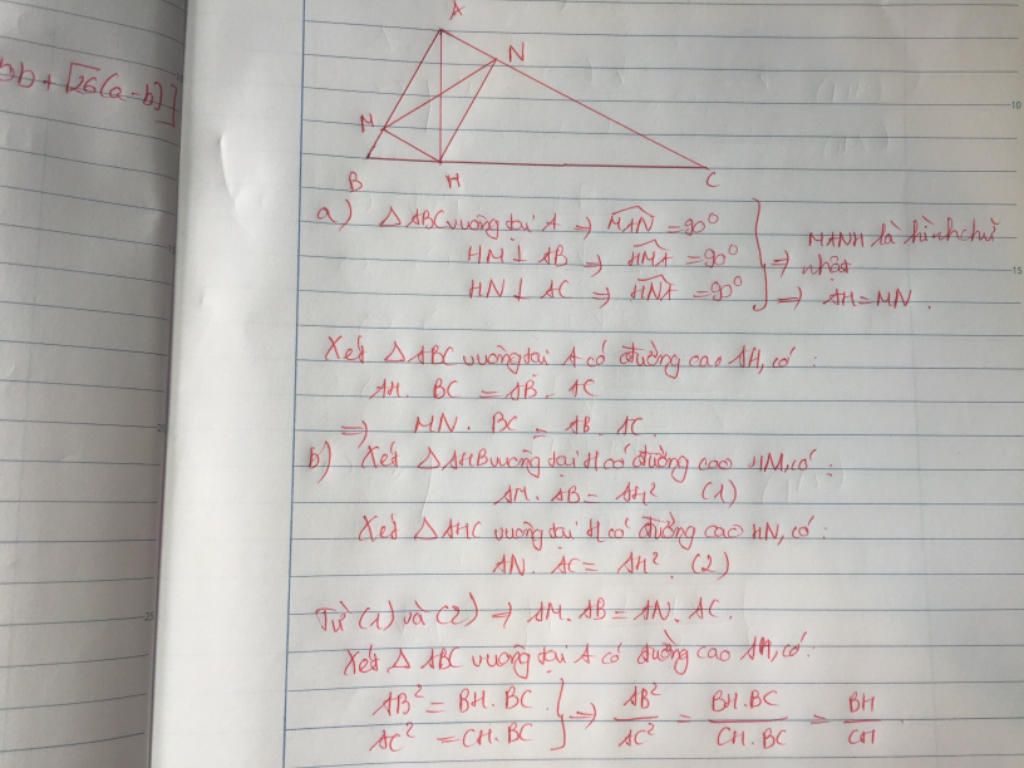 bb + √26(a-b)]
A
N
M
B
H
C
a) △ABC vuông tại A ⇒ \widehat{MAN} = 90°
HM ⊥ AB ⇒ \widehat{HMA} = 90°
HN ⊥ AC ⇒ \widehat{HNA} = 90°
⇒ MANH là hình chữ
nhật
⇒ AH = MN.
Xét △ABC vuông tại A có đường cao AH, có:
AH. BC = AB. AC
⇒ MN. BC = AB. AC.
b) Xét △AHB vuông tại H có đường cao HM, có:
AM. AB = AH² (1)
Xét △AHC vuông tại H có đường cao HN, có:
AN. AC = AH². (2)
Từ (1) và (2) ⇒ AM. AB = AN. AC.
Xét △ABC vuông tại A có đường cao AH, có:
AB² = BH. BC
AC² = CH. BC
⇒ AB²/AC² = BH.BC/CH.BC = BH/CH.
10
15
25